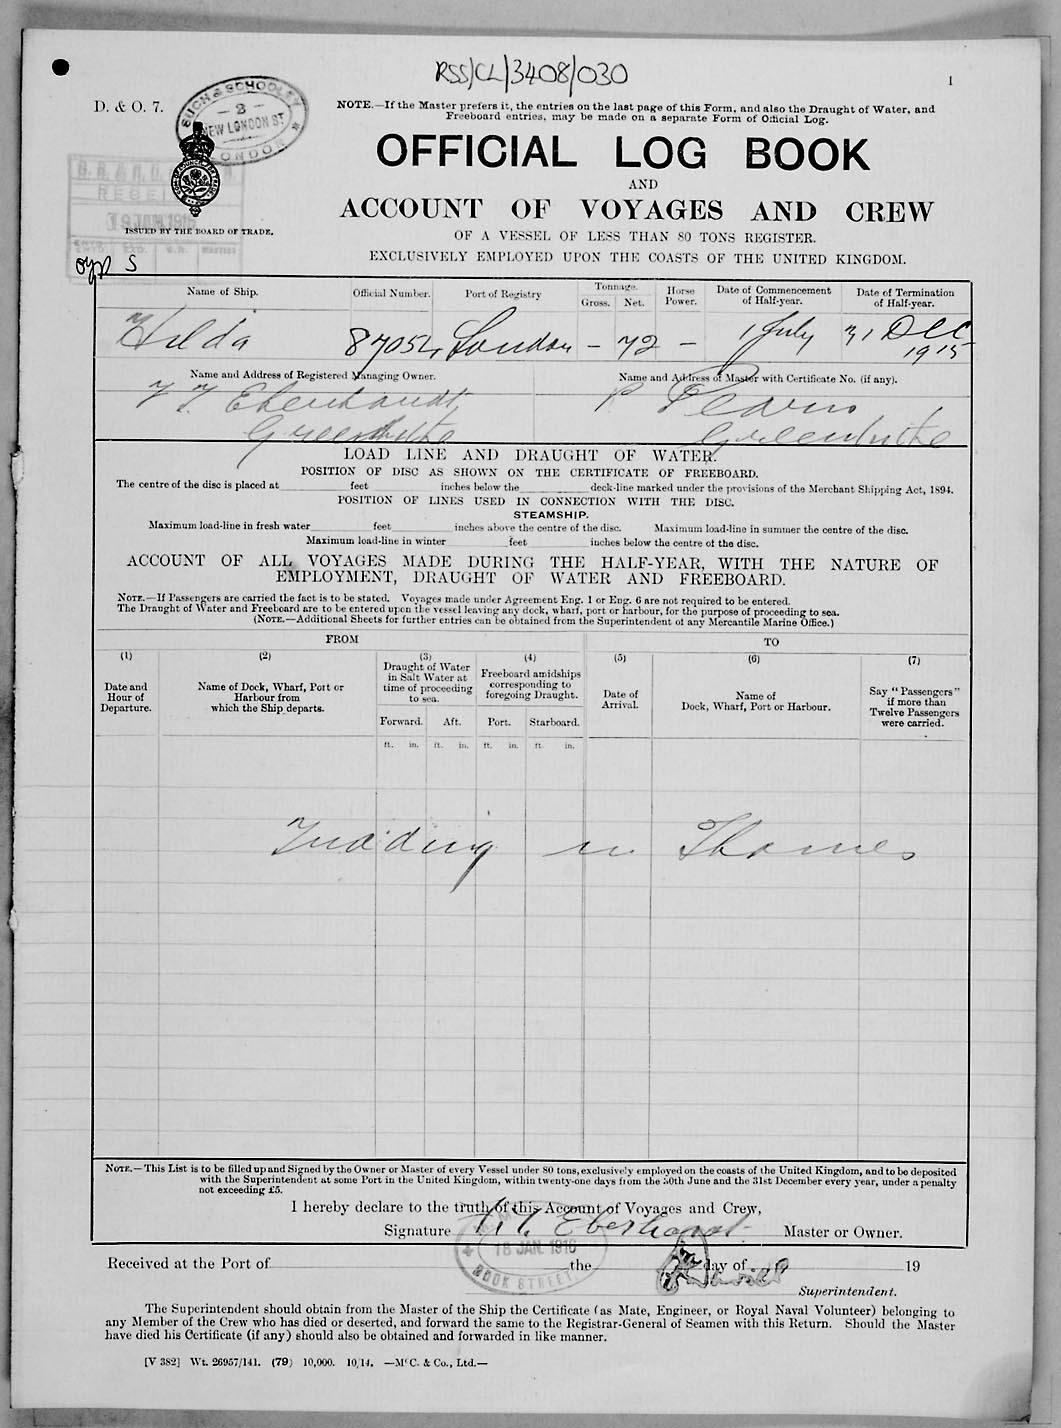 RSS/CL/3408/030
1
D. & O. 7.
SUCH & SCHOOLEY
- 2 -
NEW LONDON ST.
LONDON
NOTE.—If the Master prefers it, the entries on the last page of this Form, and also the Draught of Water, and
Freeboard entries, may be made on a separate Form of Official Log.
OFFICIAL LOG BOOK
AND
ACCOUNT OF VOYAGES AND CREW
OF A VESSEL OF LESS THAN 80 TONS REGISTER.
EXCLUSIVELY EMPLOYED UPON THE COASTS OF THE UNITED KINGDOM.
ISSUED BY THE BOARD OF TRADE.
S
Name of Ship. Official Number. Port of Registry Tonnage. Gross. Net. Horse Power. Date of Commencement of Half-year. Date of Termination of Half-year.
Hilda 87054 London - 72 - 1 July 31 Dec 1915
Name and Address of Registered Managing Owner. Name and Address of Master with Certificate No. (if any).
Eberhardt
Greenhithe Greenhithe
LOAD LINE AND DRAUGHT OF WATER.
POSITION OF DISC AS SHOWN ON THE CERTIFICATE OF FREEBOARD.
The centre of the disc is placed at feet inches below the deck-line marked under the provisions of the Merchant Shipping Act, 1894.
POSITION OF LINES USED IN CONNECTION WITH THE DISC.
STEAMSHIP.
Maximum load-line in fresh water feet inches above the centre of the disc. Maximum load-line in summer the centre of the disc.
Maximum load-line in winter feet inches below the centre of the disc.
ACCOUNT OF ALL VOYAGES MADE DURING THE HALF-YEAR, WITH THE NATURE OF
EMPLOYMENT, DRAUGHT OF WATER AND FREEBOARD.
NOTE.—If Passengers are carried the fact is to be stated. Voyages made under Agreement Eng. 1 or Eng. 6 are not required to be entered.
The Draught of Water and Freeboard are to be entered upon the vessel leaving any dock, wharf, port or harbour, for the purpose of proceeding to sea.
(NOTE.—Additional Sheets for further entries can be obtained from the Superintendent of any Mercantile Marine Office.)
FROM TO
(1) (2) (3) (4) (5) (6) (7)
Date and Hour of Departure.
Name of Dock, Wharf, Port or Harbour from which the Ship departs.
Draught of Water in Salt Water at time of proceeding to sea.
Freeboard amidships corresponding to foregoing Draught.
Date of Arrival.
Name of Dock, Wharf, Port or Harbour.
Say "Passengers" if more than Twelve Passengers were carried.
Forward. Aft. Port. Starboard.
ft. in. ft. in. ft. in. ft. in.
Trading in Thames
NOTE.—This List is to be filled up and Signed by the Owner or Master of every Vessel under 80 tons, exclusively employed on the coasts of the United Kingdom, and to be deposited
with the Superintendent at some Port in the United Kingdom, within twenty-one days from the 30th June and the 31st December every year, under a penalty
not exceeding £5.
I hereby declare to the truth of this Account of Voyages and Crew,
Signature Eberhardt Master or Owner.
18 JAN. 1916
DOCK STREET
Received at the Port of the day of 19
Superintendent.
The Superintendent should obtain from the Master of the Ship the Certificate (as Mate, Engineer, or Royal Naval Volunteer) belonging to
any Member of the Crew who has died or deserted, and forward the same to the Registrar-General of Seamen with this Return. Should the Master
have died his Certificate (if any) should also be obtained and forwarded in like manner.
[V 382] Wt. 26957/141. (79) 10,000. 10/14. —McC. & Co., Ltd.—